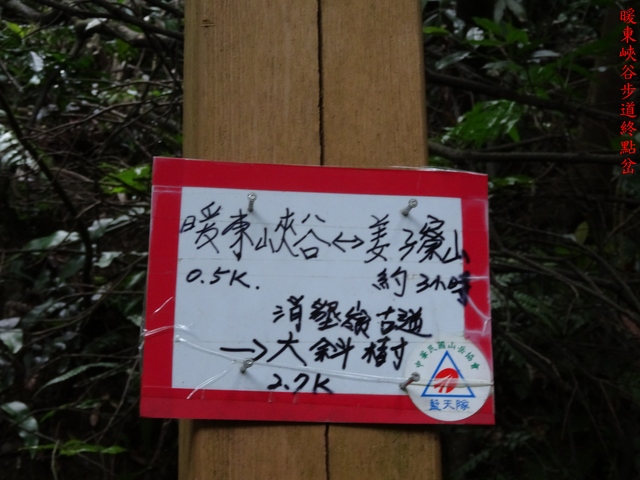 暖東峽谷步道終點岔
暖東峽谷↔姜子寮山
0.5K. 約3小時
消壑嶺古道
→大斜樹
2.7K
中華民國山岳協會
藍天隊